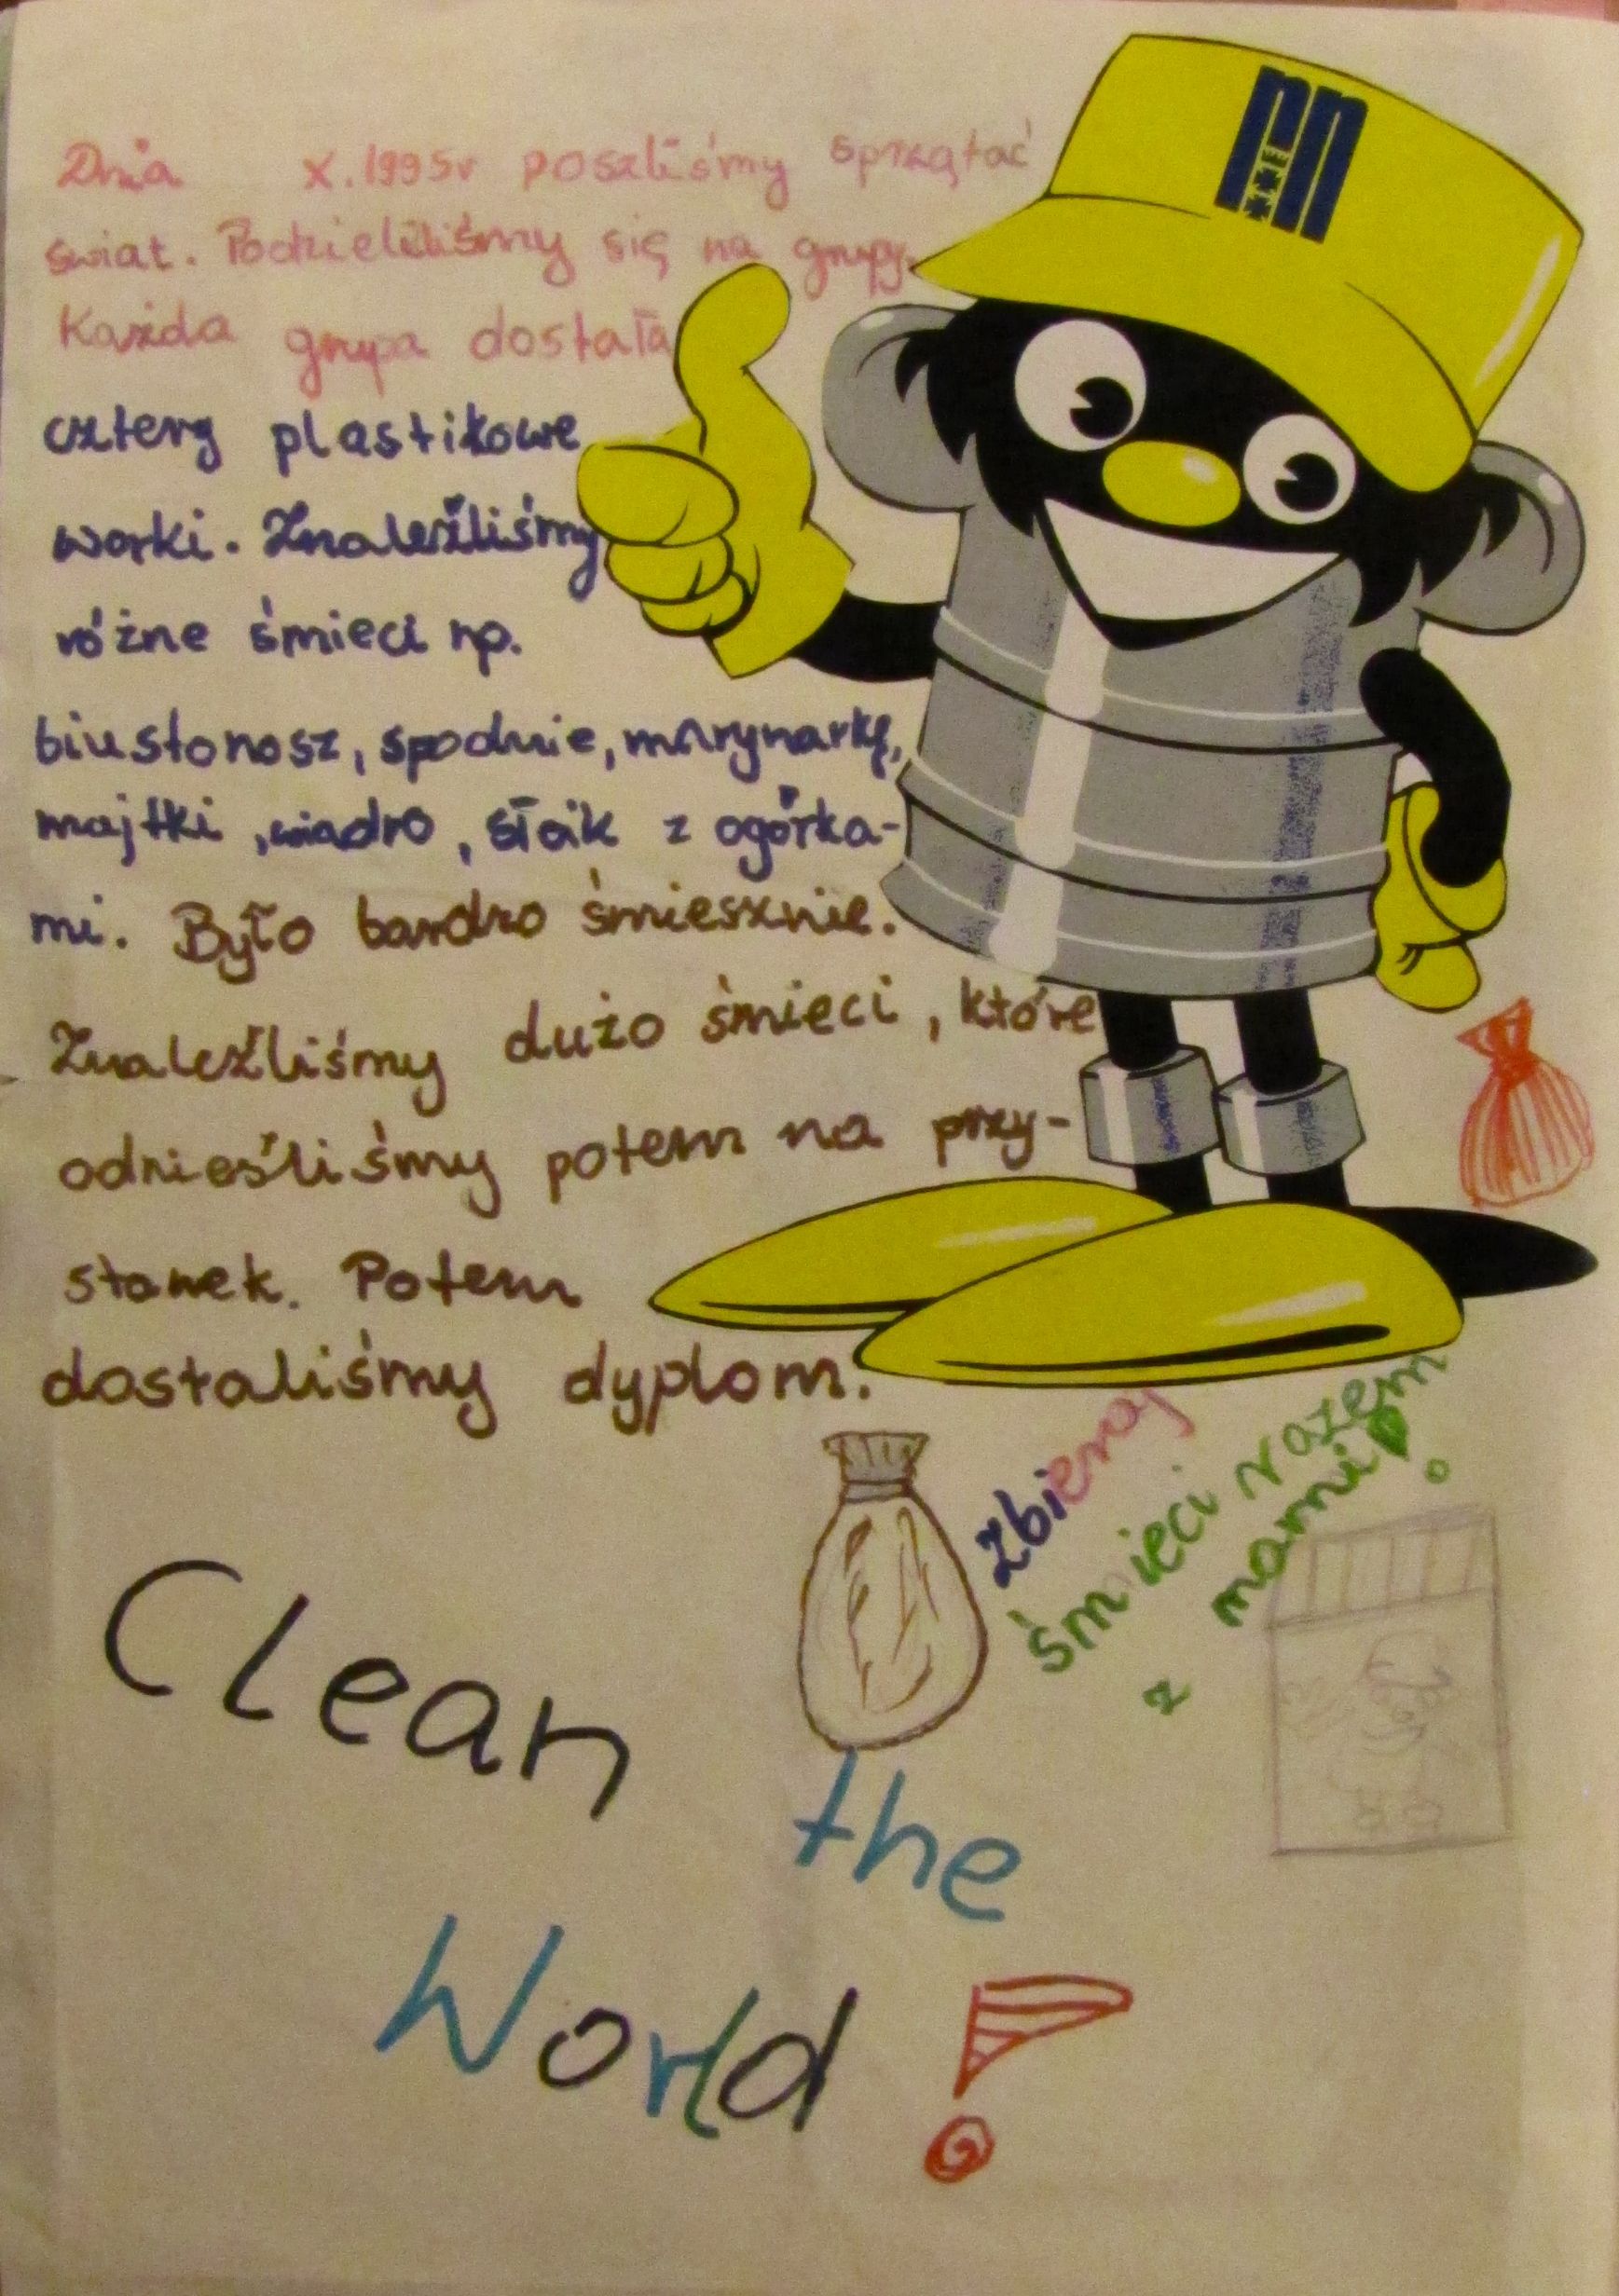 Dnia X.1995r poszliśmy sprzątać
świat. Podzieliliśmy się na grupy.
Każda grupa dostała
cztery plastikowe
worki. Znaleźliśmy
różne śmieci np.
biustonosz, spodnie, marynarkę,
majtki, wiadro, słoik z ogórka-
mi. Było bardzo śmiesznie.
Znaleźliśmy dużo śmieci, które
odnieśliśmy potem na przy-
stanek. Potem
dostaliśmy dyplom.
Zbieraj
śmieci razem
z nami!
Clean
the
World!